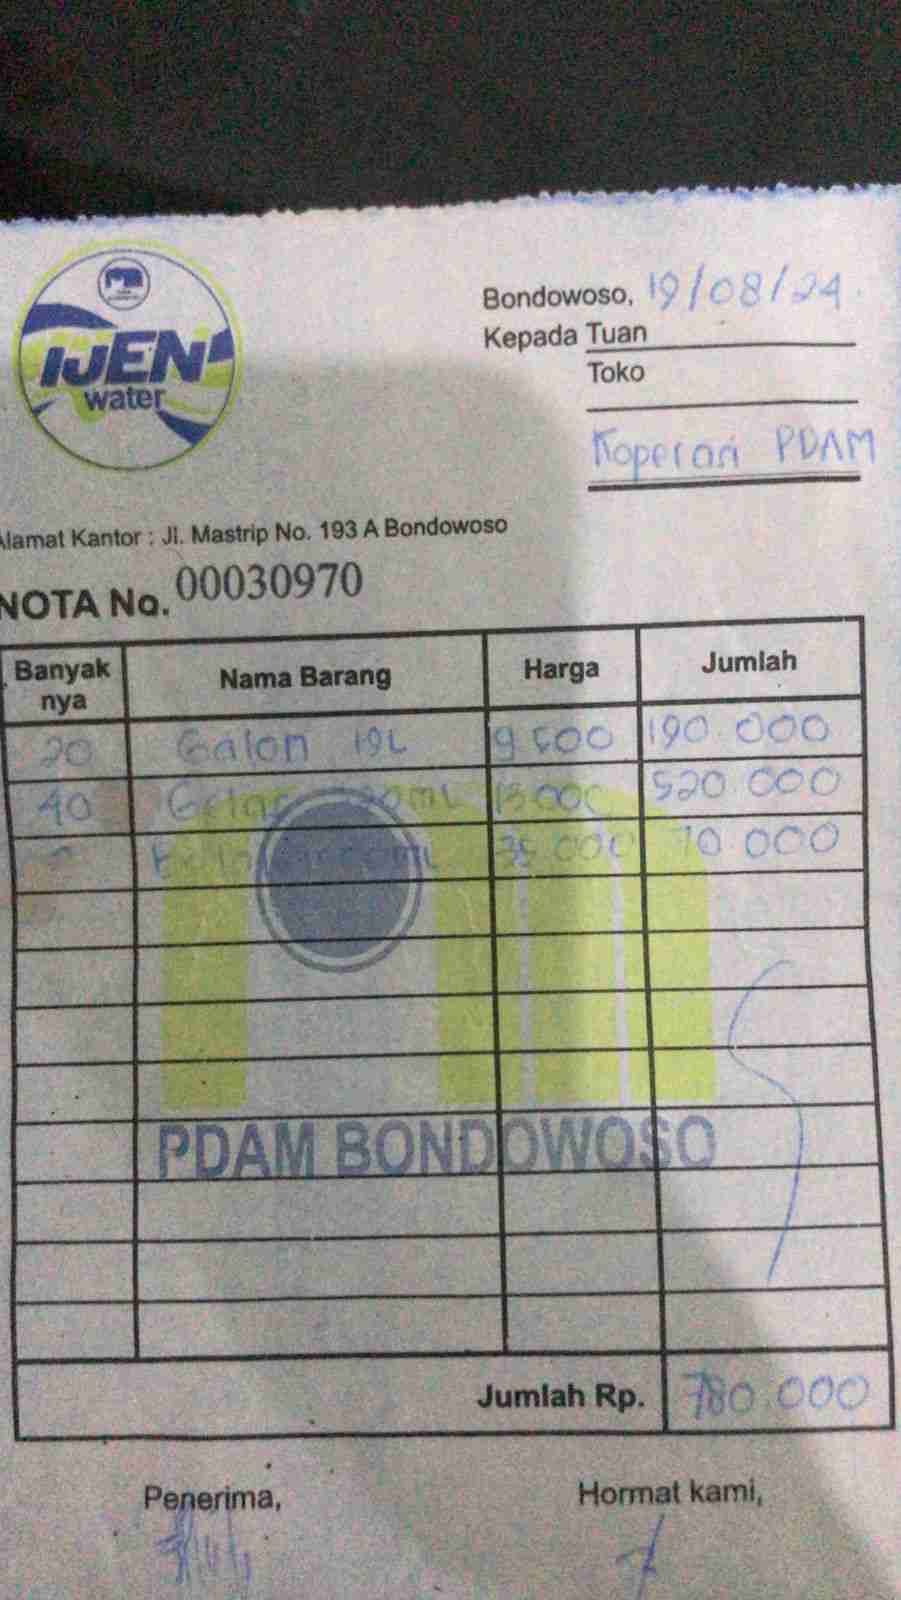 IJEN
water
Bondowoso, 19/08/24
Kepada Tuan
Toko
Koperasi PDAM
Alamat Kantor : Jl. Mastrip No. 193 A Bondowoso
NOTA No. 00030970
Banyak nya Nama Barang Harga Jumlah
20 Galon 19L 9 500 190 000
40 Gelas 13 000 520 000
35 000 70 000
PDAM BONDOWOSO
Jumlah Rp. 780.000
Penerima, Hormat kami,